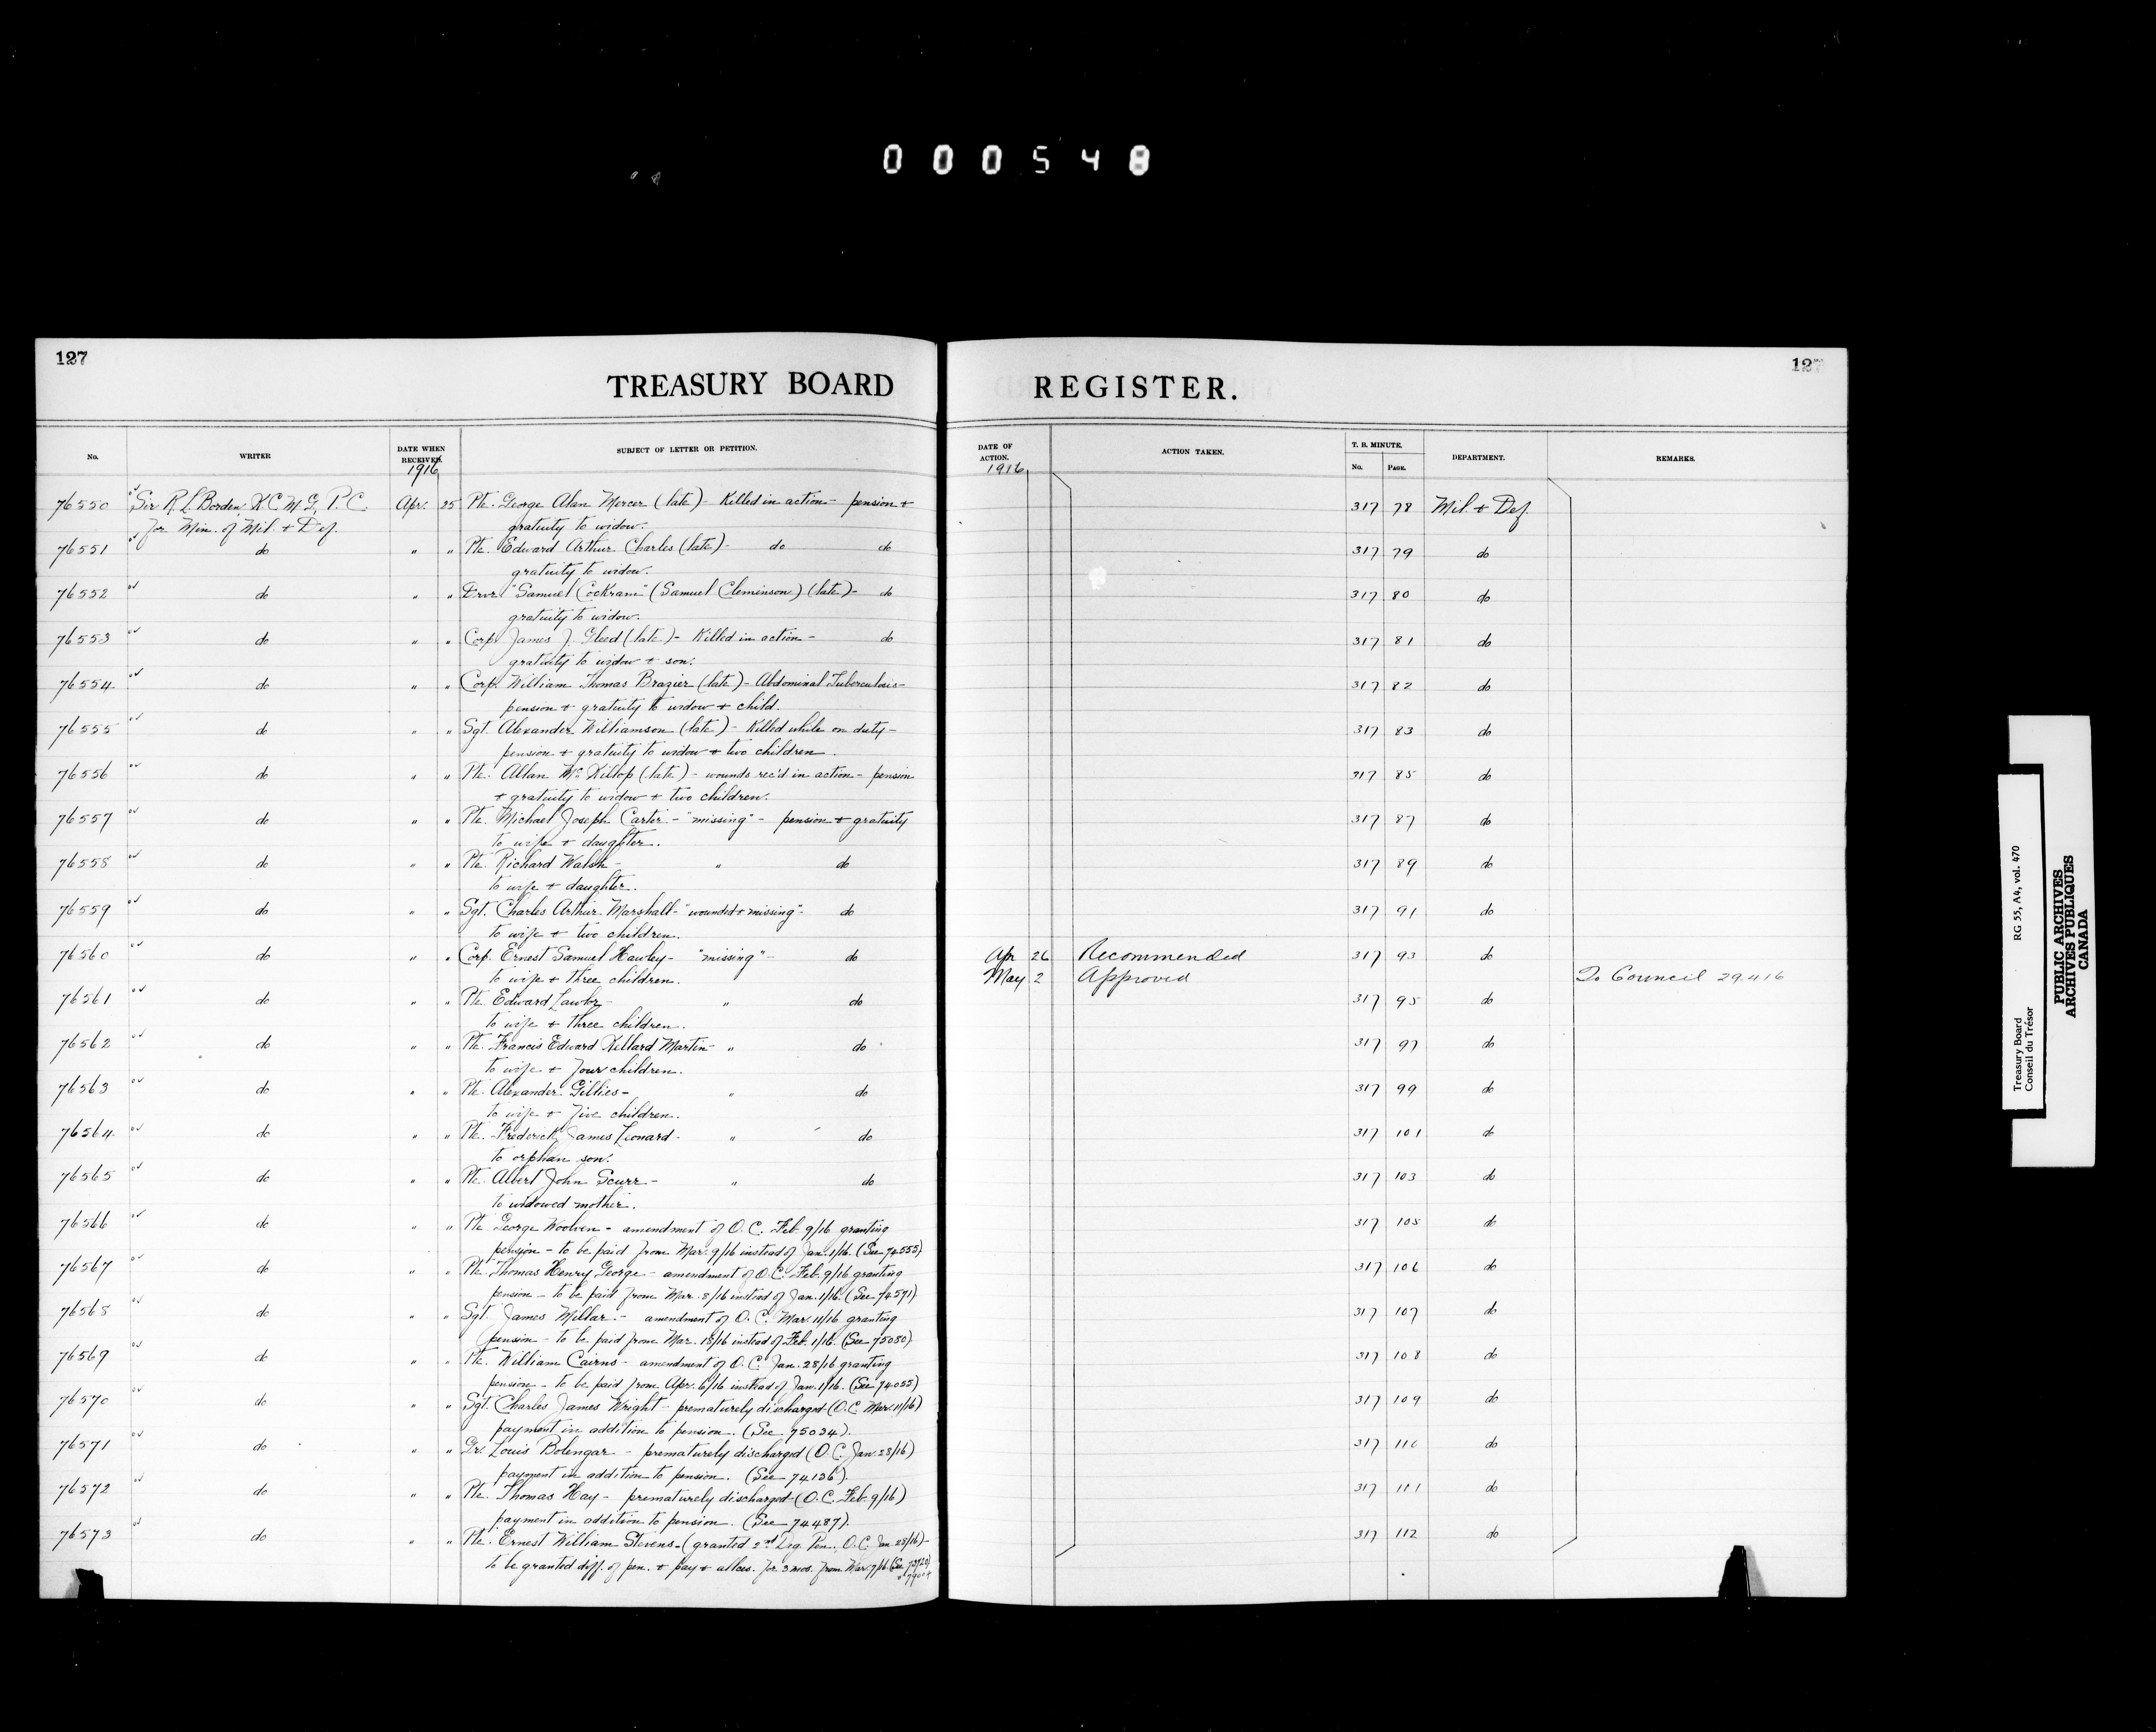 000548
127
TREASURY BOARD
No.
WRITER
DATE WHEN RECEIVED.
1916
SUBJECT OF LETTER OR PETITION.
76550 Sir R. L. Borden, K.C.M.G., P.C. Apr. 25 Pte. George Alan Mercer (late) - Killed in action - pension +
for Min. of Mil. + Def. gratuity to widow.
76551 do " " Pte. Edward Arthur Charles (late) - do do
gratuity to widow.
76552 do " " Drvr. "Samuel Cockram" (Samuel Cleminson) (late) - do
gratuity to widow.
76553 do " " Corp. James J. Gleed (late) - Killed in action - do
gratuity to widow + son.
76554 do " " Corp. William Thomas Brazier (late) - Abdominal Tuberculosis -
pension + gratuity to widow + child.
76555 do " " Sgt. Alexander Williamson (late) - Killed while on duty -
pension + gratuity to widow + two children.
76556 do " " Pte. Allan McKillop (late) - wounds rec'd in action - pension
+ gratuity to widow + two children.
76557 do " " Pte. Michael Joseph Carter - "missing" - pension + gratuity
to wife + daughter.
76558 do " " Pte. Richard Walsh - " do
to wife + daughter.
76559 do " " Sgt. Charles Arthur Marshall - "wounded + missing" - do
to wife + two children.
76560 do " " Corp. Ernest Samuel Hawley - "missing" - do
to wife + three children.
76561 do " " Pte. Edward Lawlor - " do
to wife + three children.
76562 do " " Pte. Francis Edward Killard Martin - " do
to wife + four children.
76563 do " " Pte. Alexander Gillies - " do
to wife + five children.
76564 do " " Pte. Frederick James Leonard - " do
to orphan son.
76565 do " " Pte. Albert John Scurr - " do
to widowed mother.
76566 do " " Pte. George Woolven - amendment of O.C. Feb. 9/16 granting
pension - to be paid from Mar. 9/16 instead of Jan. 1/16. (See 74555)
76567 do " " Pte. Thomas Henry George - amendment of O.C. Feb. 9/16 granting
pension - to be paid from Mar. 8/16 instead of Jan. 1/16. (See 74571)
76568 do " " Sgt. James Millar - amendment of O.C. Mar. 11/16 granting
pension - to be paid from Mar. 18/16 instead of Feb. 1/16. (See 75080)
76569 do " " Pte. William Cairns - amendment of O.C. Jan. 28/16 granting
pension - to be paid from Apr. 6/16 instead of Jan. 1/16. (See 74055)
76570 do " " Sgt. Charles James Wright - prematurely discharged (O.C. Mar. 11/16)
payment in addition to pension. (See 75034).
76571 do " " Gr. Louis Bolengar - prematurely discharged (O.C. Jan. 28/16)
payment in addition to pension. (See 74136).
76572 do " " Pte. Thomas Hay - prematurely discharged (O.C. Feb. 9/16)
payment in addition to pension. (See 74487).
76573 do " " Pte. Ernest William Stevens - (granted 2nd Deg. Pen. O.C. Jan. 28/16) -
to be granted diff. of pen. + pay + allces. for 3 mos. from Mar. 7/16 (See
REGISTER.
DATE OF ACTION.
1916
ACTION TAKEN.
T. B. MINUTE.
No. PAGE.
DEPARTMENT.
REMARKS.
317 78 Mil. + Def.
317 79 do
317 80 do
317 81 do
317 82 do
317 83 do
317 85 do
317 87 do
317 89 do
317 91 do
Apr 26 Recommended 317 93 do
May 2 Approved To Council 29.4.16
317 95 do
317 97 do
317 99 do
317 101 do
317 103 do
317 105 do
317 106 do
317 107 do
317 108 do
317 109 do
317 110 do
317 111 do
317 112 do
Treasury Board RG 55, A4, vol. 470
Conseil du Trésor
PUBLIC ARCHIVES
ARCHIVES PUBLIQUES
CANADA